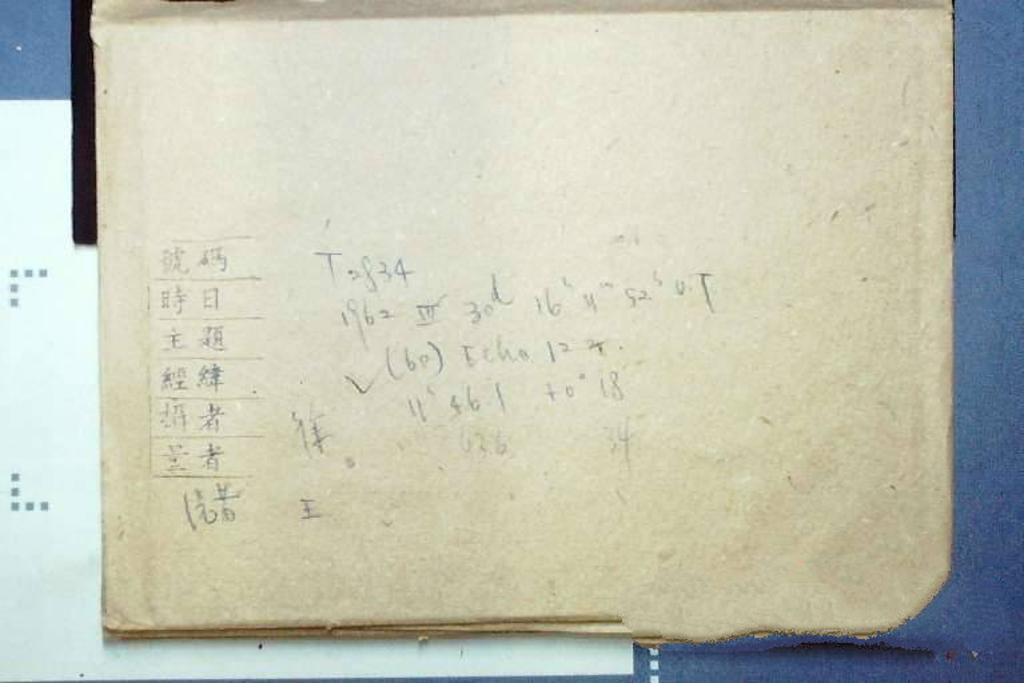 號碼 T 2834
時日 1962 III 30d 16h 11m 52s U.T
主題 (60) Echo 12等.
經緯 11h 46.1 +0° 18
攝者 徐 03.6 34
量者
读者 王